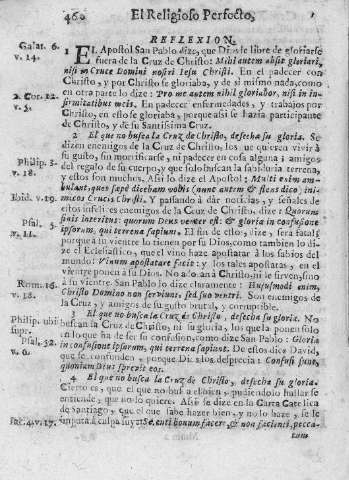 460 El Religioso Perfecto,
REFLEXION.
Galat. 6. v. 14.
1 EL Apostol San Pablo dize, que Dios le libre de gloriarse
fuera de la Cruz de Christo: Mihi autem absit gloriari,
nisi in Cruce Domini nostri Iesu Christi. En el padecer con
Christo, y por Christo se gloriaba, y de si mismo nada, como
2. Cor. 12. v. 5.
en otra parte lo dize: Pro me autem nihil gloriabor, nisi in in-
firmitatibus meis. En padecer enfermedades, y trabajos por
Christo, en esto se gloriaba, porque assi se hazia participante
de Christo, y de su Santissima Cruz.
2 El que no busca la Cruz de Christo, desecha su gloria. Se
dizen enemigos de la Cruz de Christo, los que quieren vivir á
su gusto, sin mortificarse, ni padecer en cosa alguna; amigos
Philip. 3. v. 18.
del regalo de su cuerpo, y que solo buscan la sabiduria terrena,
y estos son muchos. Assi lo dize el Apostol: Multi enim am-
bulant, quos sæpè dicebam vobis (nunc autem & flens dico) ini-
Ibid. v. 19.
micos Crucis Christi. Y passando á dàr noticias, y señales de
estos infelices enemigos de la Cruz de Christo, dize: Quorum
finis interitus, quorum Deus venter est: & gloria in confusione
Psal. 5. v. 11.
ipsorum, qui terrena sapiunt. El fin de estos, dize, serà fatal;
porque à su vientre lo tienen por su Dios, como tambien lo di-
ze el Eclesiastico, que el vino haze apostatar à los sabios del
mundo: Vinum apostatare facit: y los tales apostatas, en el
vientre ponen à su Dios. No aman à Christo, ni le sirven, sino
Rom. 16. v. 18.
à su vientre. San Pablo lo dize claramente: Hujusmodi enim,
Christo Domino non serviunt, sed suo ventri. Son enemigos de
la Cruz, y amigos de su gusto brutal, y corruptible.
3 El que no busca la Cruz de Christo, desecha su gloria. No
Philip. ubi supr.
buscan la Cruz de Christo, ni su gloria, los que la ponen solo
en lo que ha de ser su confusion, como dize San Pablo: Gloria
Psal. 52. v. 6.
in confusione ipsorum, qui terrena sapiunt. De estos dize David,
que se confunden, porque Dios los desprecia: Confusi sunt,
quoniam Deus sprevit eos.
4 El que no busca la Cruz de Christo, desecha su gloria.
Cierto es, que el que no busca el bien, pudiendolo hallar se
entiende, que no lo quiere. Assi se dize en la Carta Catolica
de Santiago, que el que sabe hazer bien, y no lo haze, se le
Iac. 4. v. 17.
imputa à culpa suya: Scienti bonum facere, & non facienti, pecca-
tum